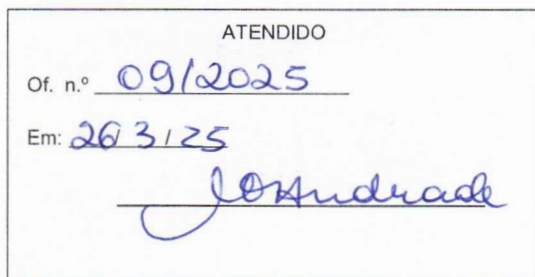 ATENDIDO
Of. n.º 09/2025
Em: 26/3/25
JOAndrade